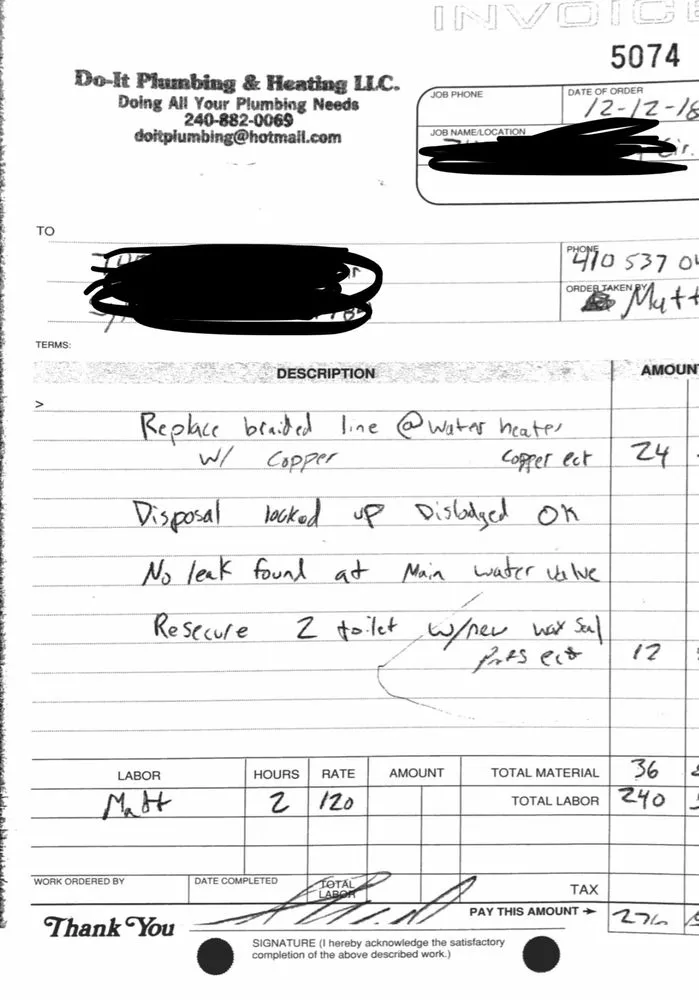 INVOICE
5074
Do-It Plumbing & Heating LLC.
Doing All Your Plumbing Needs
240-882-0069
doitplumbing@hotmail.com
JOB PHONE
DATE OF ORDER
12-12-18
JOB NAME/LOCATION
Cir.
TO
PHONE
410 537 0
ORDER TAKEN BY
Matt
TERMS:
DESCRIPTION
AMOUN
>
Replace braided line @ water heater
w/ copper copper ect 24
Disposal locked up Dislodged OK
No leak found at Main water valve
Resecure 2 toilet w/new wax seal
parts ect 12
LABOR HOURS RATE AMOUNT TOTAL MATERIAL 36
Matt 2 120 TOTAL LABOR 240
WORK ORDERED BY
DATE COMPLETED
TOTAL
LABOR
TAX
Thank You
PAY THIS AMOUNT → 276
SIGNATURE (I hereby acknowledge the satisfactory
completion of the above described work.)